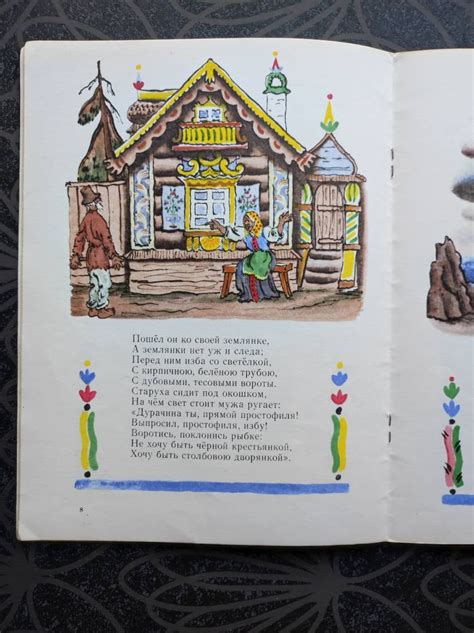 Пошёл он ко своей землянке,
А землянки нет уж и следа;
Перед ним изба со светёлкой,
С кирпичною, белёною трубою,
С дубовыми, тесовыми вороты.
Старуха сидит под окошком,
На чём свет стоит мужа ругает:
«Дурачина ты, прямой простофиля!
Выпросил, простофиля, избу!
Воротись, поклонись рыбке:
Не хочу быть чёрной крестьянкой,
Хочу быть столбовою дворянкой».
8